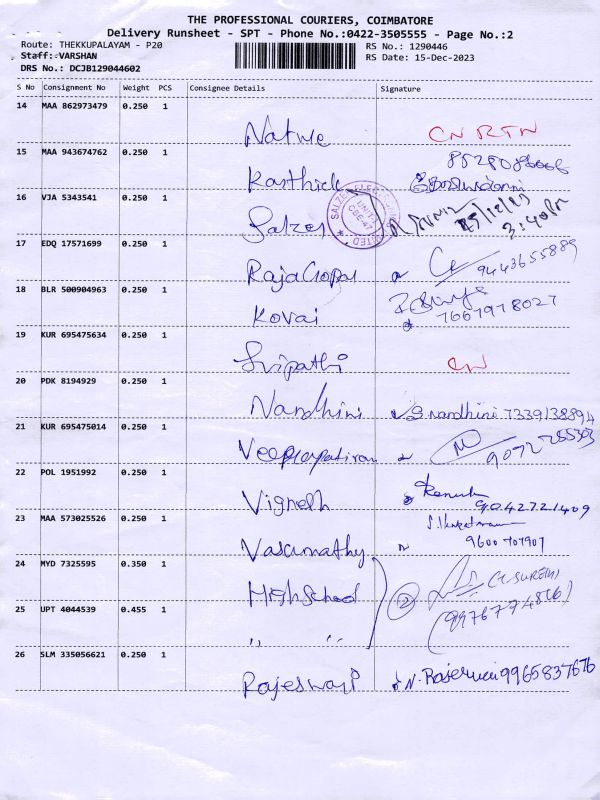 THE PROFESSIONAL COURIERS, COIMBATORE
Delivery Runsheet - SPT - Phone No.:0422-3505555 - Page No.:2
Route: THEKKUPALAYAM - P20 RS No.: 1290446
Staff: VARSHAN RS Date: 15-Dec-2023
DRS No.: DCJB129044602
S No Consignment No Weight PCS Consignee Details Signature
14 MAA 862973479 0.250 1
CN RTN
15 MAA 943674762 0.250 1
Karthick
16 VJA 5343541 0.250 1
Salzer SALZER UNIT CBE-47 3:40 PM
17 EDQ 17571699 0.250 1
RajaGopal 9443655889
18 BLR 500904963 0.250 1
Kovai 7667978027
19 KUR 695475634 0.250 1
Sripathi CN
20 PDK 8194929 0.250 1
Nandhini S nandhini 7339138894
21 KUR 695475014 0.250 1
22 POL 1951992 0.250 1
Vignesh 9042721409
23 MAA 573025526 0.250 1
Vasumathy 9600707907
24 MYD 7325595 0.350 1
High School 2
25 UPT 4044539 0.455 1
,, ,,
26 SLM 335056621 0.250 1
Rajeswari N. Rajeswari 9965837676